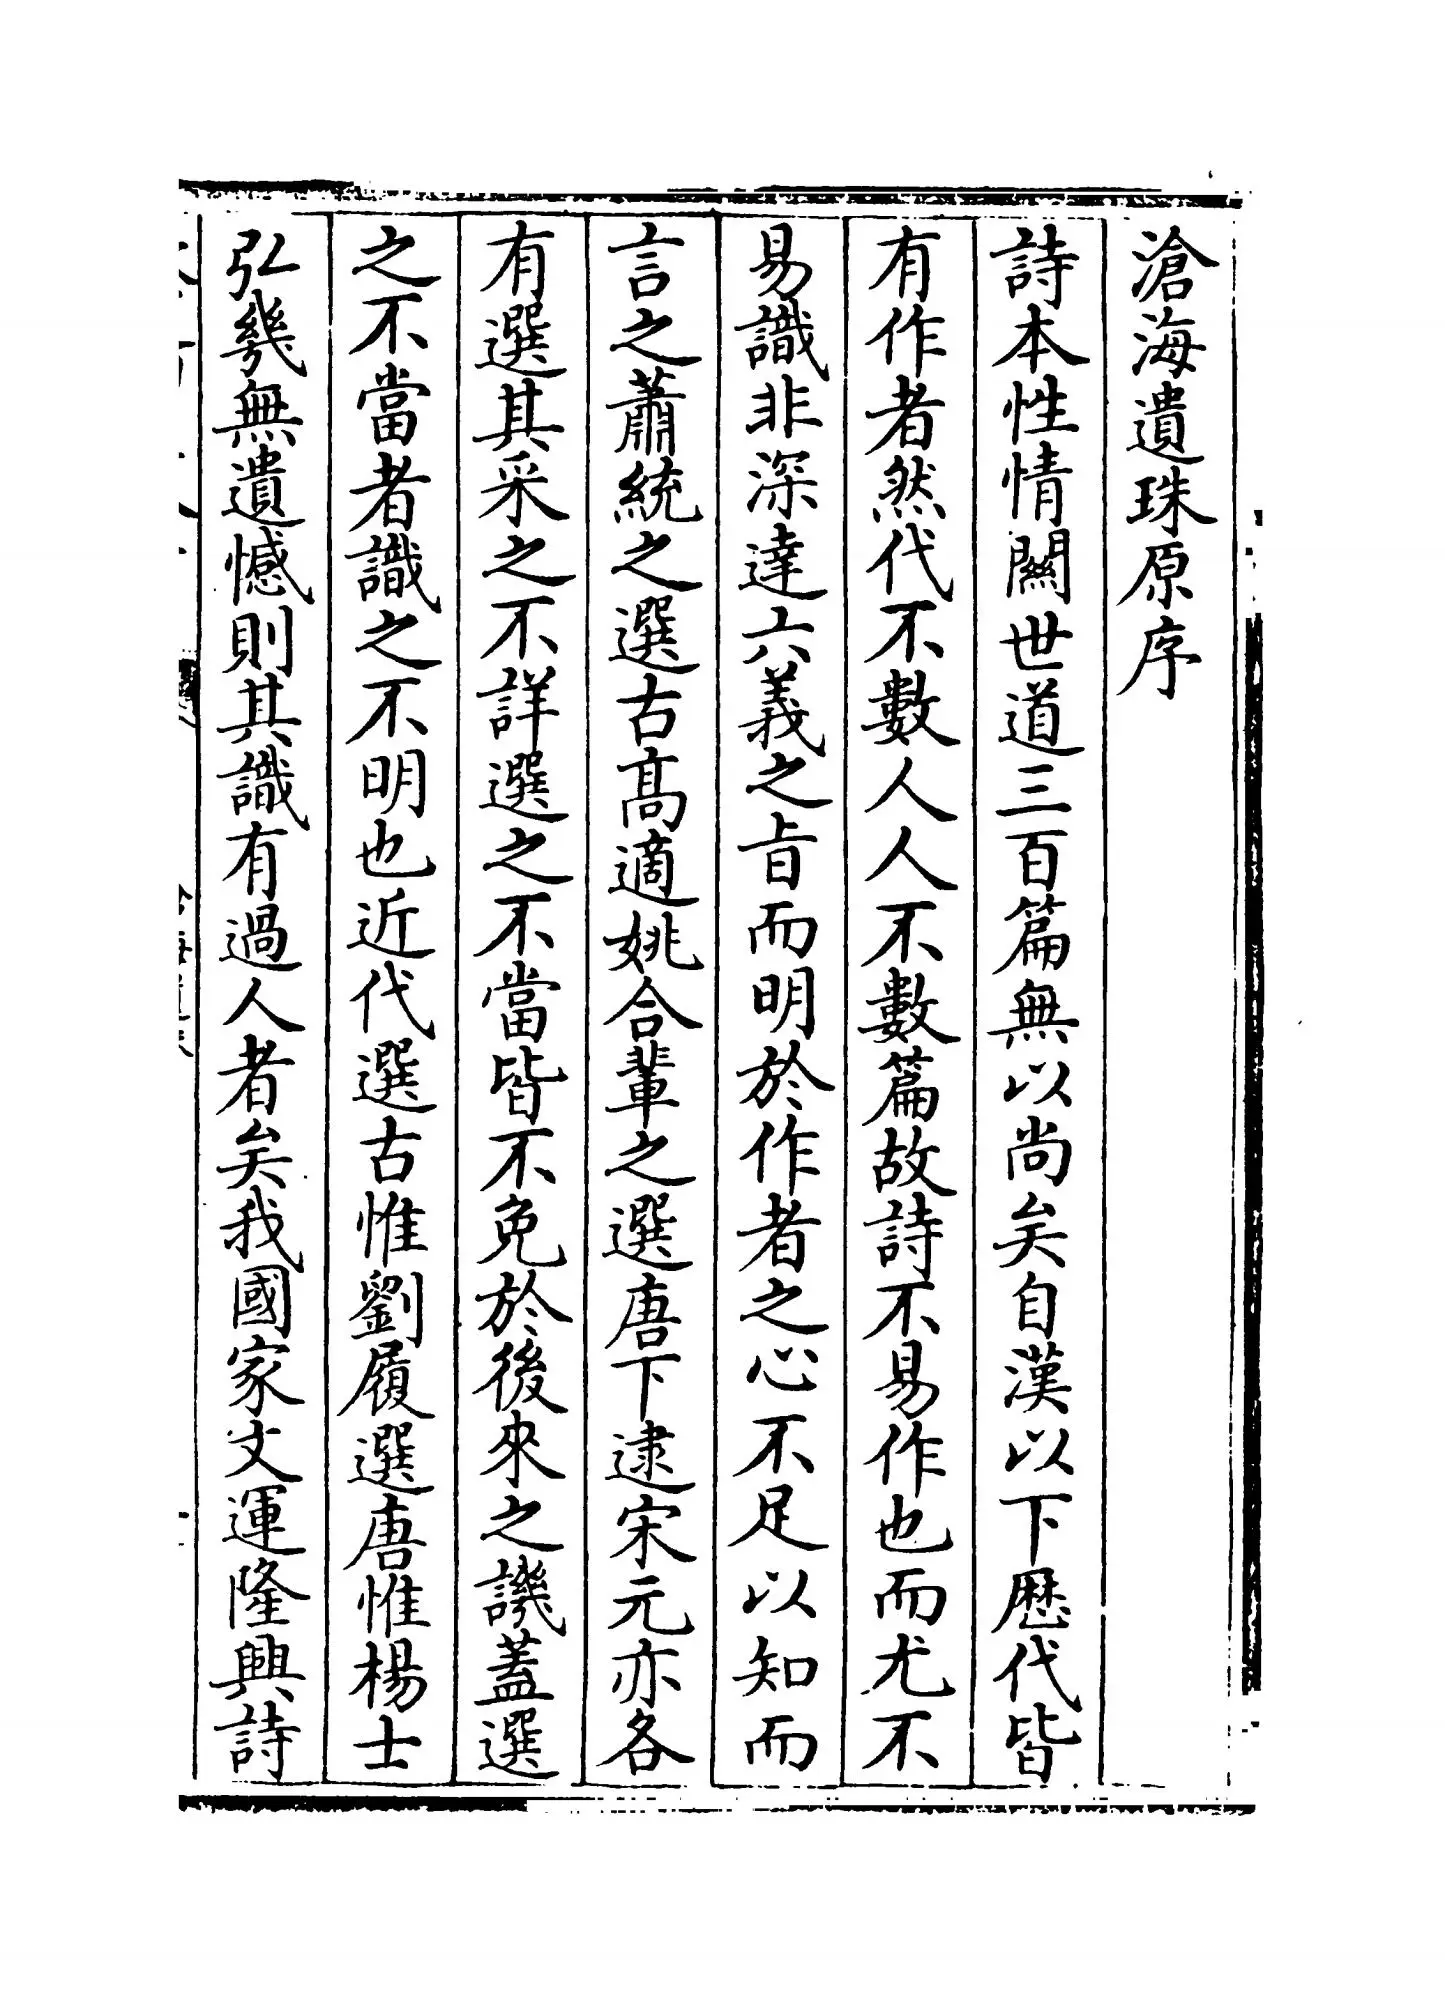 滄海遺珠原序
詩本性情關世道三百篇無以尚矣自漢以下歴代皆
有作者然代不數人人不數篇故詩不易作也而尤不
易識非深達六義之㫖而明於作者之心不足以知而
言之蕭統之選古髙適姚合輩之選唐下逮宋元亦各
有選其采之不詳選之不當皆不免於後來之譏蓋選
之不當者識之不明也近代選古惟劉履選唐惟楊士
弘幾無遺憾則其識有過人者矣我國家文運隆興詩